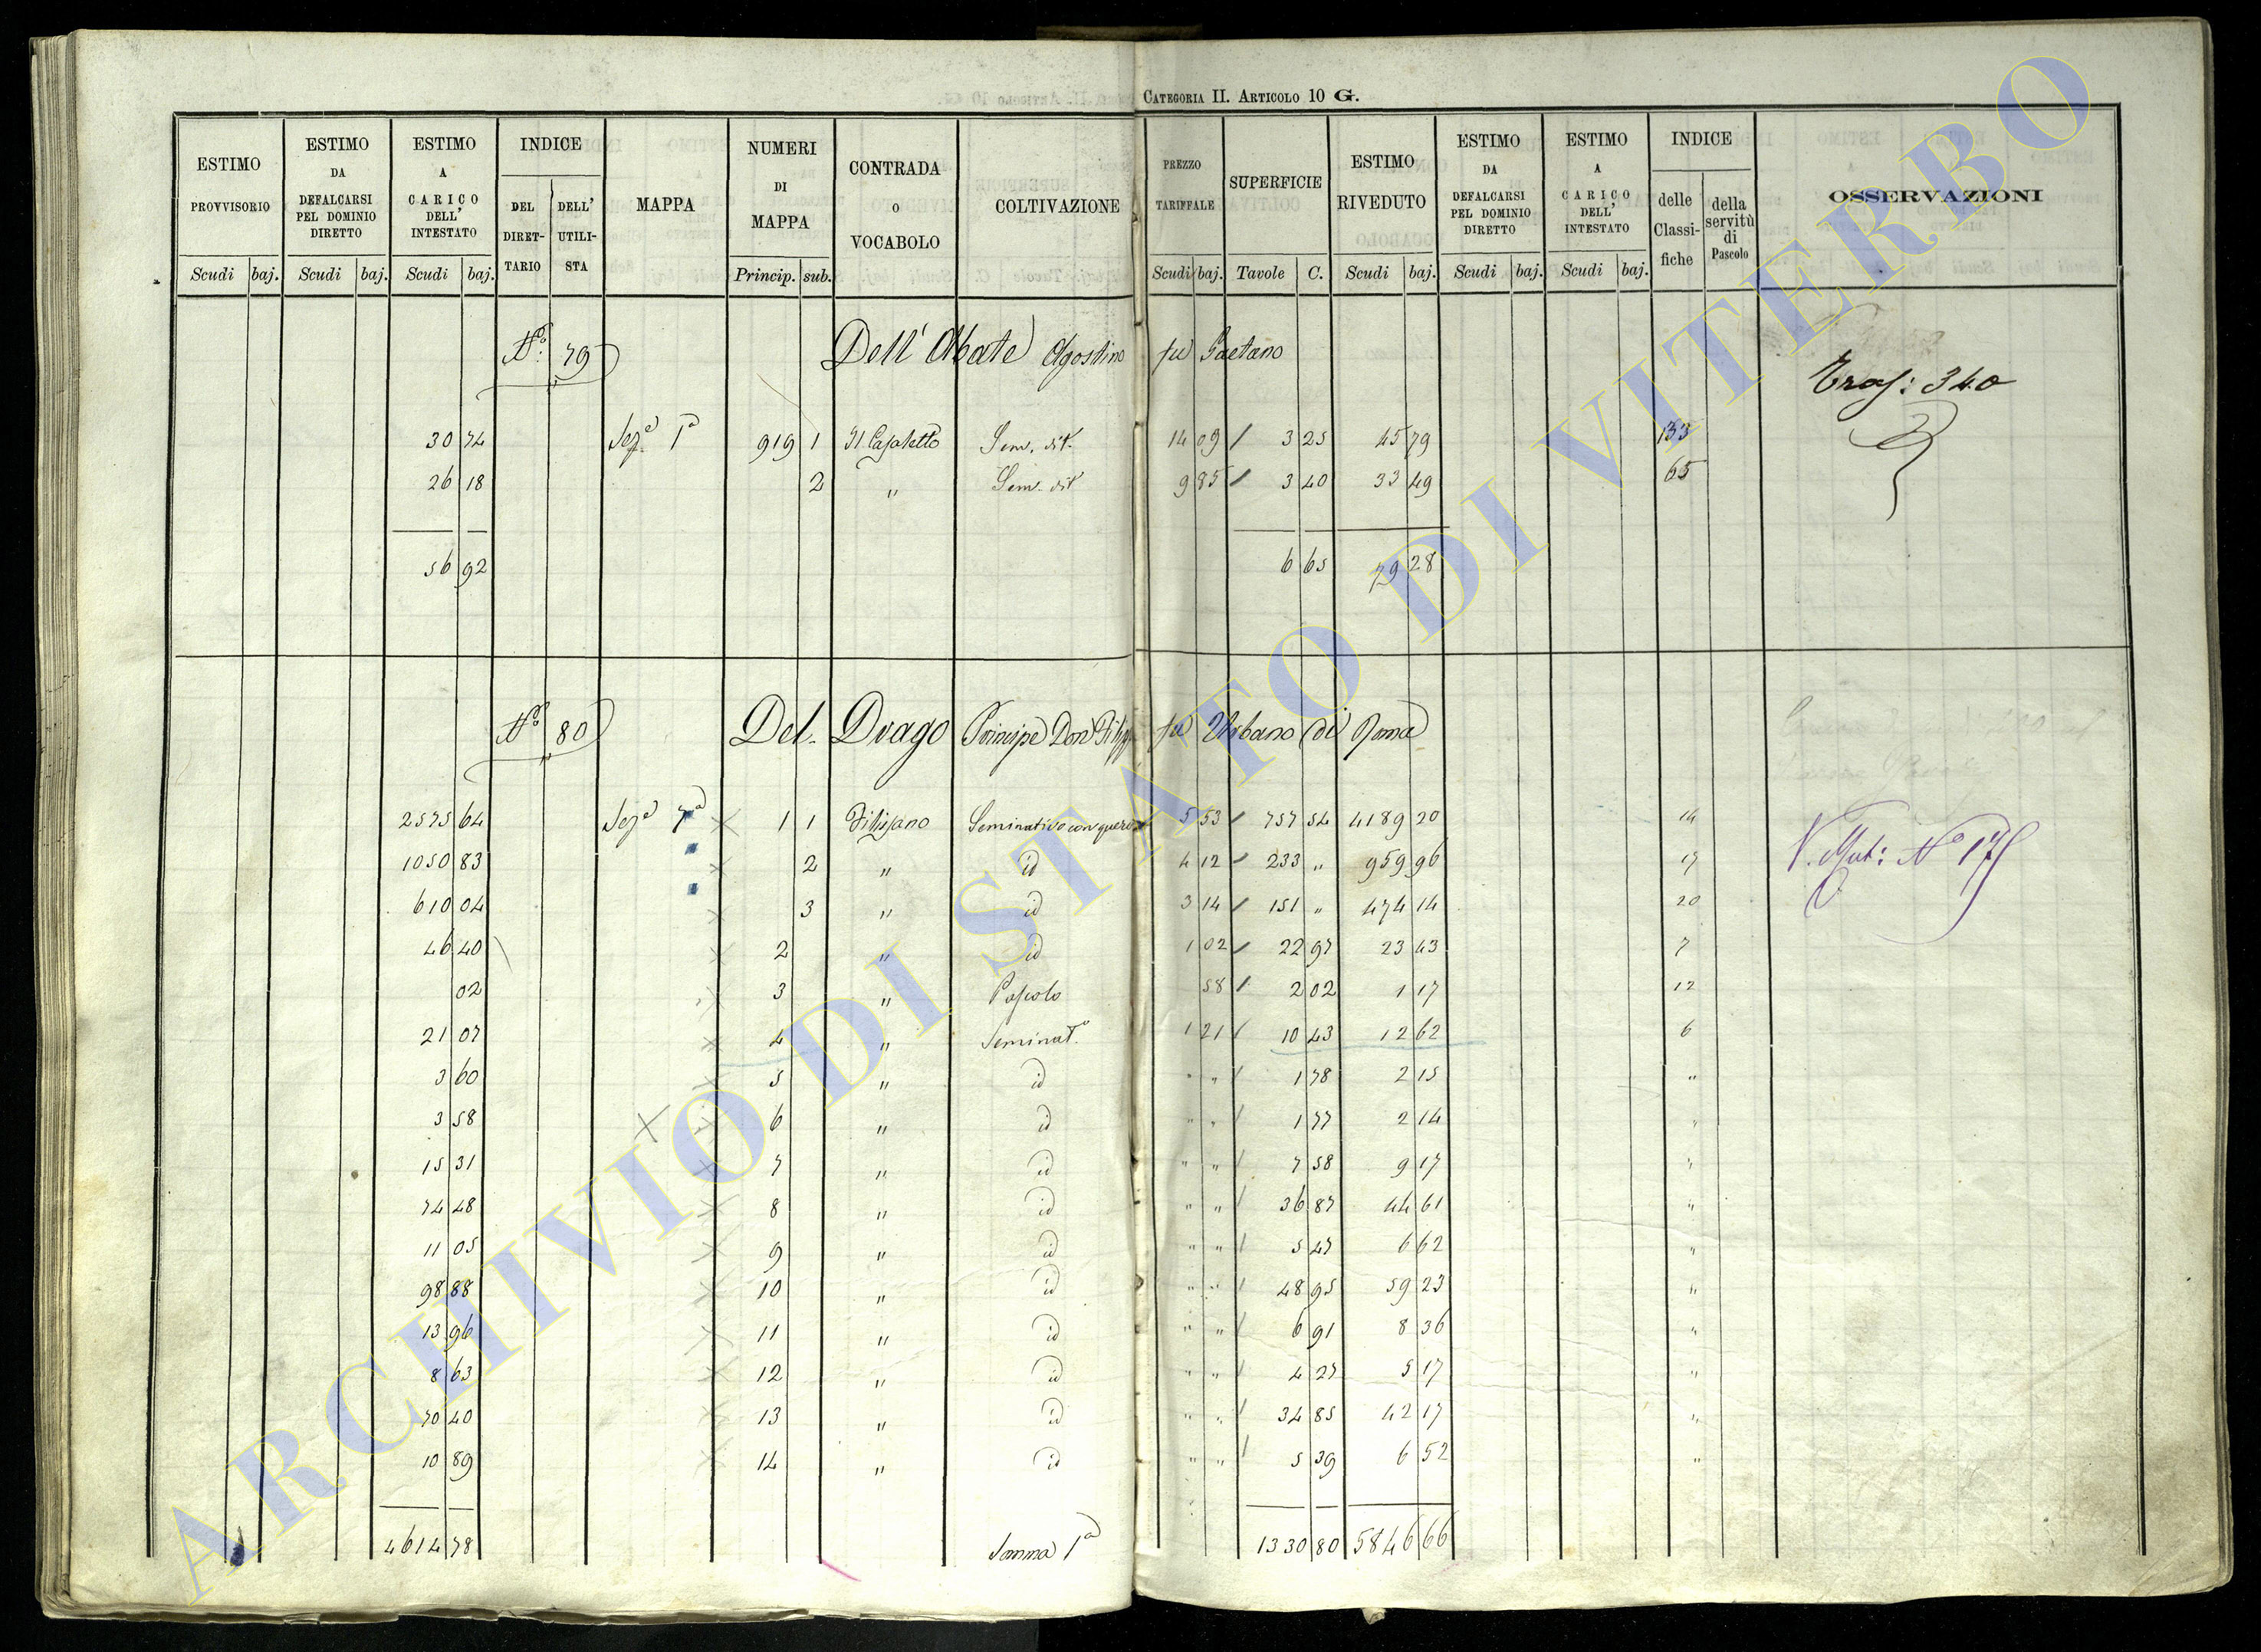 CATEGORIA II. ARTICOLO 10 G.
ESTIMO PROVVISORIO Scudi baj.
ESTIMO DA DEFALCARSI PEL DOMINIO DIRETTO Scudi baj.
ESTIMO A CARICO DELL' INTESTATO Scudi baj.
INDICE DEL DIRET-TARIO DELL' UTILI-STA
MAPPA
NUMERI DI MAPPA Princip. sub.
CONTRADA O VOCABOLO
COLTIVAZIONE
PREZZO TARIFFALE Scudi baj.
SUPERFICIE Tavole C.
ESTIMO RIVEDUTO Scudi baj.
ESTIMO DA DEFALCARSI PEL DOMINIO DIRETTO Scudi baj.
ESTIMO A CARICO DELL' INTESTATO Scudi baj.
INDICE delle Classi-fiche della servitù di Pascolo
OSSERVAZIONI
No. 79 Dell' Abate Agostino fu Gaetano
Trasf: 340
30 74 Seze 1a 919 1 Il Casaletto Sem. vit. 14 09 / 3 25 45 79 133
26 18 2 " Sem. vit 9 85 / 3 40 33 49 65
56 92 6 65 79 28
No. 80 Del Drago Principe Don Filippo fu Urbano di Roma
2575 64 Seze 7a 1 1 Filissano Seminativo con querce 5 53 / 757 54 4189 20 14
V. Mut: No 175
1050 83 2 " id 4 12 / 233 " 959 96 17
610 04 3 " id 3 14 / 151 " 474 14 20
46 40 2 " id 1 02 / 22 97 23 43 7
02 3 " Pascolo 58 / 2 02 1 17 12
21 07 4 " Seminat. 1 21 / 10 43 12 62 6
3 60 5 " id " " / 1 78 2 15 "
3 58 6 " id " " / 1 77 2 14 "
15 31 7 " id " " / 7 58 9 17 "
74 48 8 " id " " / 36 87 44 61 "
11 05 9 " id " " / 5 47 6 62 "
98 88 10 " id " " / 48 95 59 23 "
13 96 11 " id " " / 6 91 8 36 "
8 63 12 " id " " / 4 27 5 17 "
70 40 13 " id " " / 34 85 42 17 "
10 89 14 " id " " / 5 39 6 52 "
4614 78 Somma 1a 1330 80 5846 66
ARCHIVIO DI STATO DI VITERBO